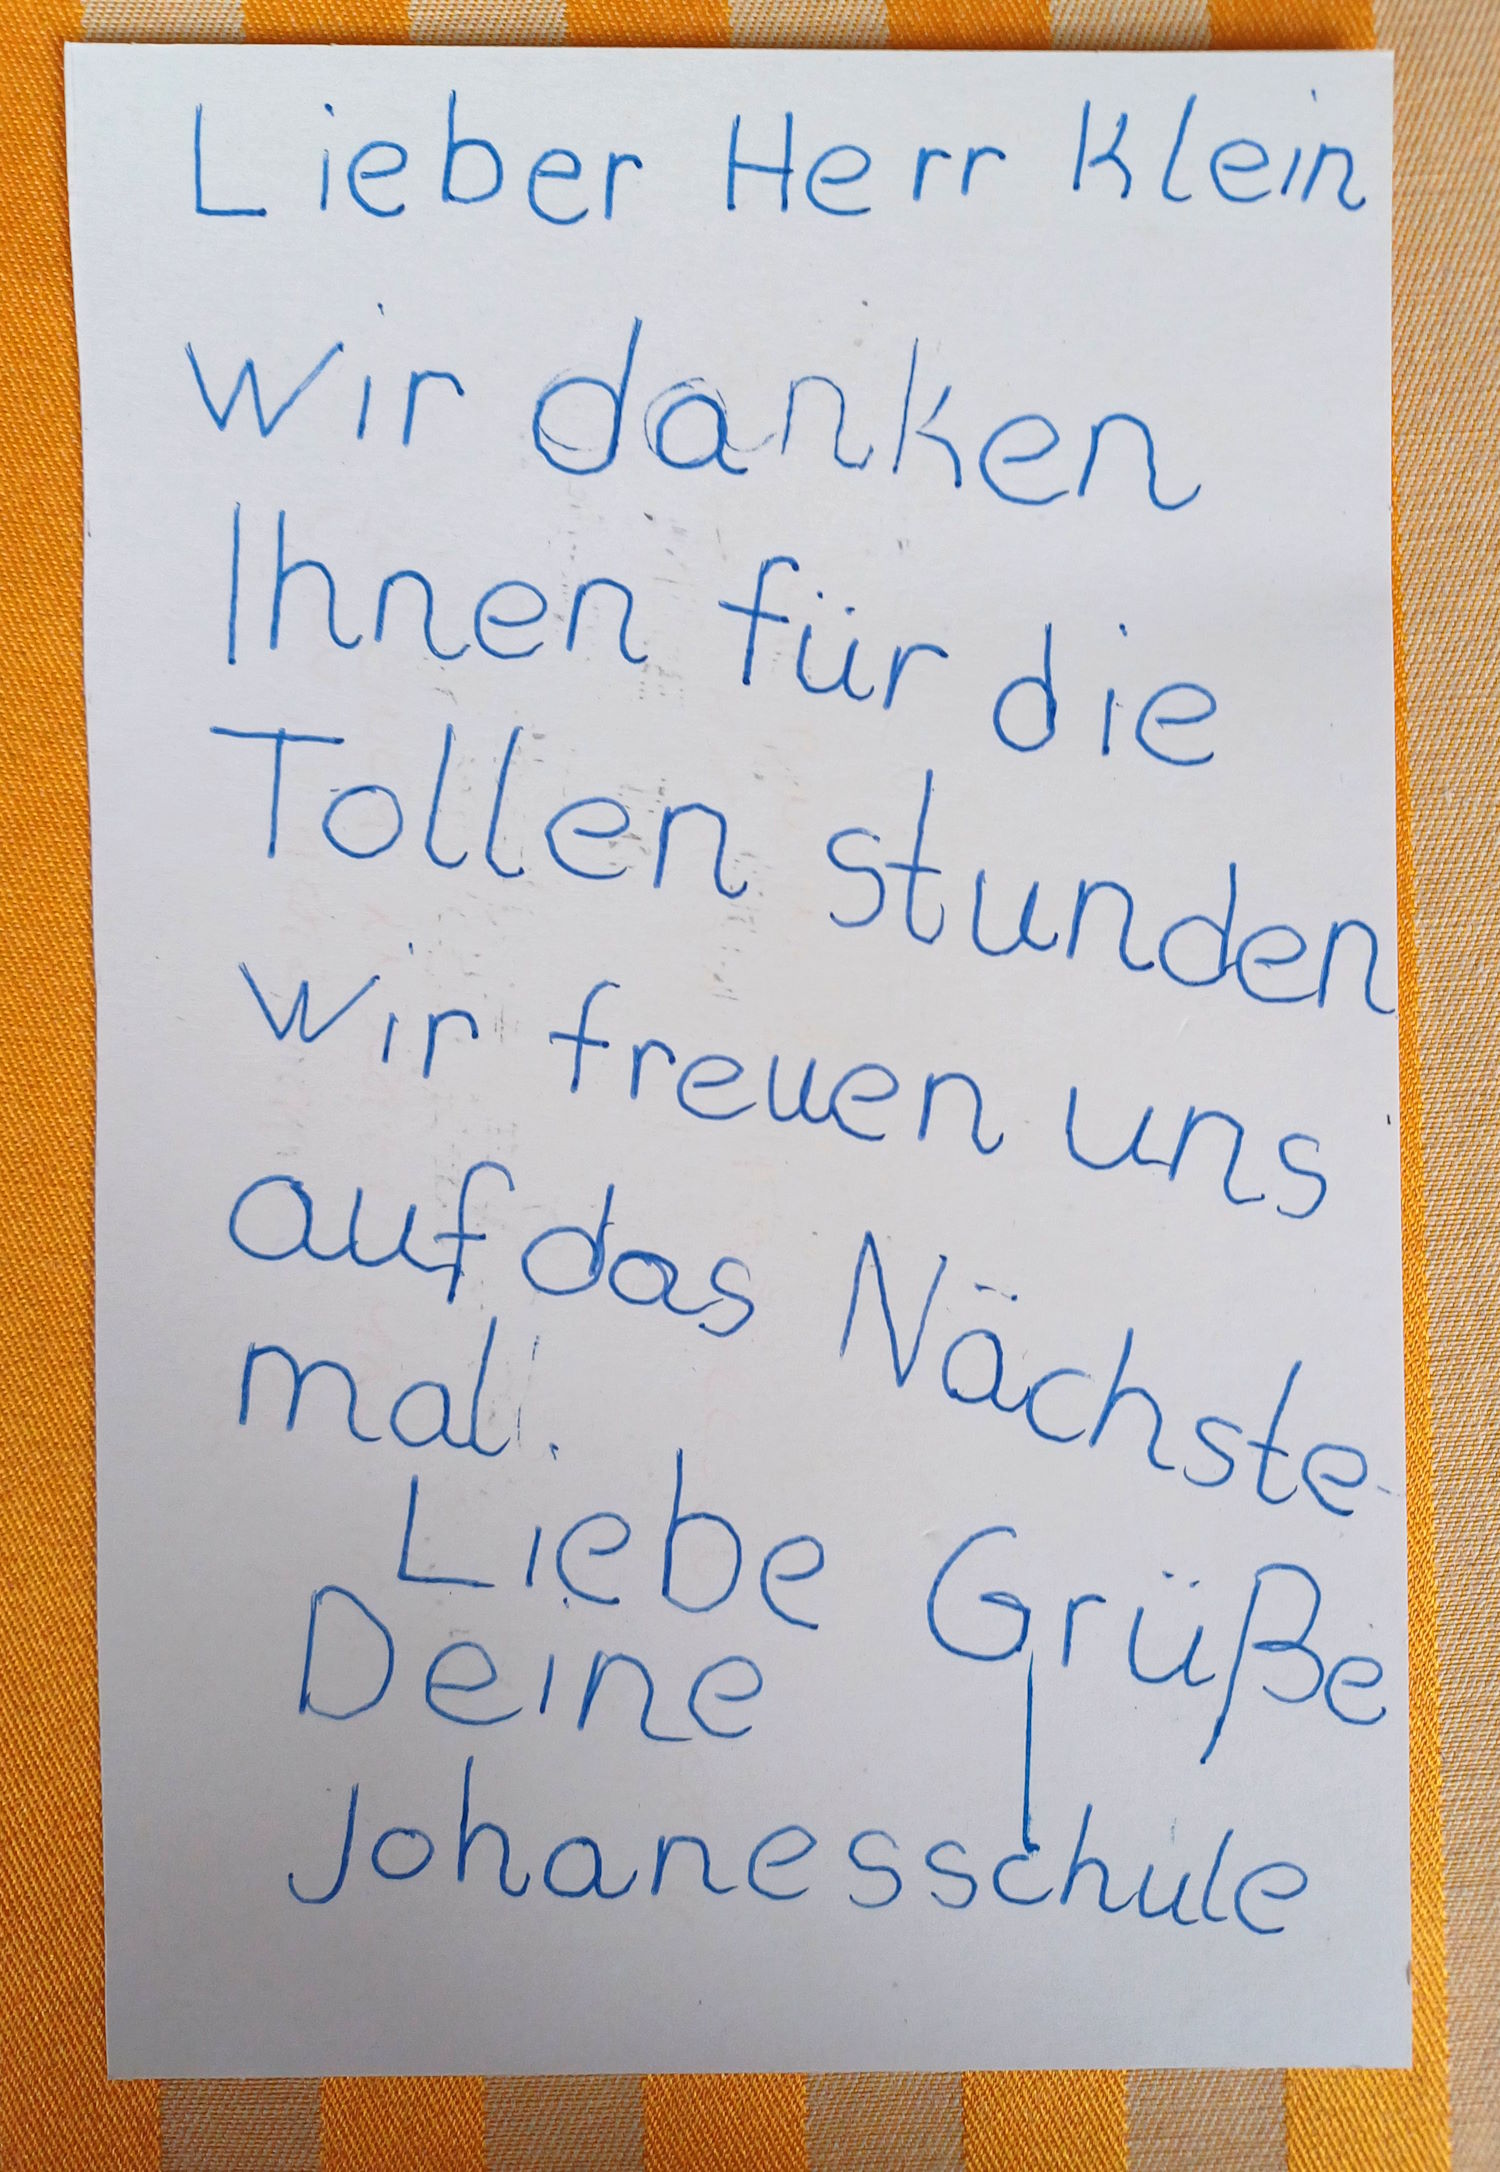 Lieber Herr Klein
wir danken
Ihnen für die
Tollen stunden
wir freuen uns
auf das Nächste
mal.
Liebe Grüße
Deine
Johanesschule